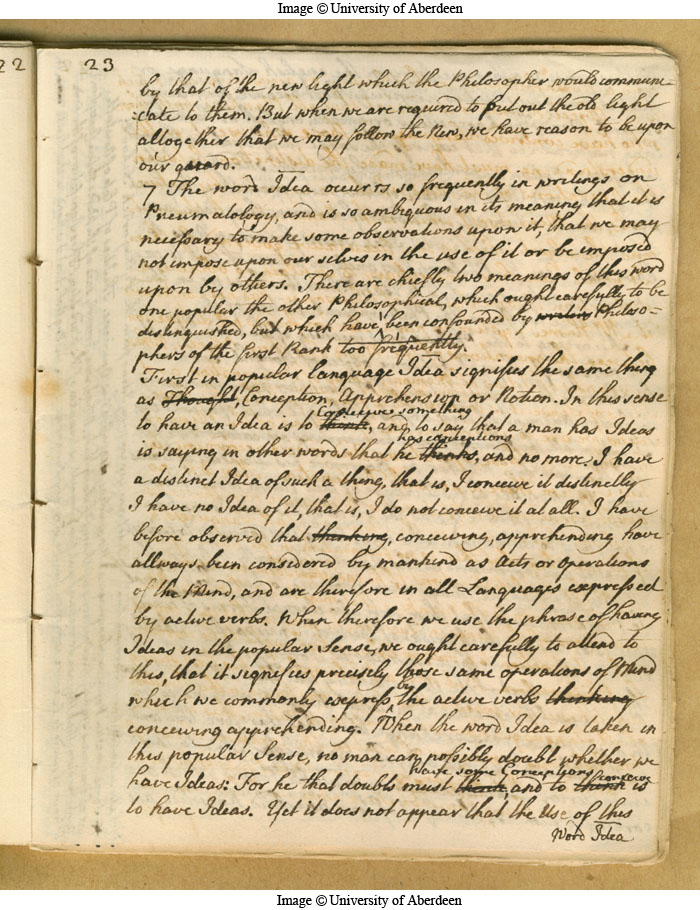 Image © University of Aberdeen
22
23
by that of the new light which the Philosopher would communi
cate to them. But when we are required to put out the old light
altogether that we may follow the New, we have reason to be upon
our guard.
7 The word Idea occurrs so frequently in writings on
Pneumatology, and is so ambiguous in its meaning that it is
necessary to make some observations upon it, that we may
not impose upon our selves in the use of it or be imposed
upon by others. There are chiefly two meanings of this word
one popular the other Philosophical, which ought carefully to be
distinguished, but which have been confounded by writers Philoso=
phers of the first Rank too frequently.
First in popular language Idea signifies the same thing
as Thought, Conception, Apprehension or Notion. In this sense
Conceive something
to have an Idea is to think, and to say that a man has Ideas
has conceptions
is saying in other words that he thinks, and no more. I have
a distinct Idea of such a thing, that is, I conceive it distinctly
I have no Idea of it, that is, I do not conceive it at all. I have
before observed that thinking, conceiving, apprehending have
allways been considered by mankind as Acts or Operations
of the Mind, and are therefore in all Languages expressed
by active verbs. When therefore we use the phrase of having
Ideas in the popular Sense, we ought carefully to attend to
this, that it signifies precisely those same operations of Mind
by
which we commonly express, the active verbs thinking
conceiving apprehending. When the word Idea is taken in
this popular Sense, no man can possibly doubt whether we
have some Conceptions conceive
have Ideas: For he that doubts must think, and to think is
to have Ideas. Yet it does not appear that the Use of this
Word Idea
Image © University of Aberdeen